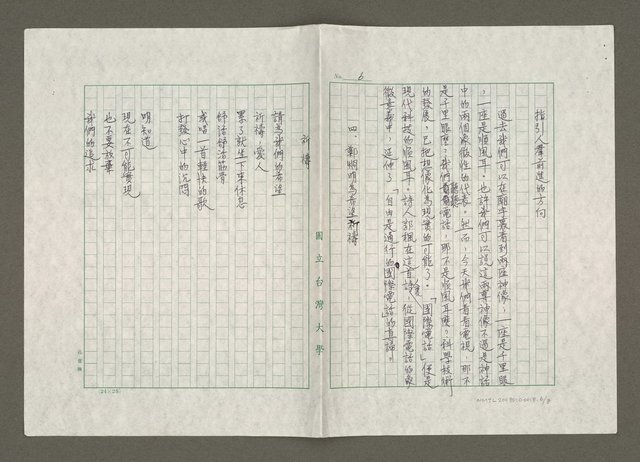 No. 6
指引人羣前進的方向
過去我們可以在廟宇裏看到兩座神像，一座是千里眼
，一座是順風耳。也許我們可以說這兩尊神像不過是神話
中的兩個象徵性的代表。然而，今天我們看看電視，那不
是千里眼麼？我們聽聽電話，那不是順風耳麼？科學技術
的發展，已把想像化為現實的可能了。「國際電話」便是
現代科技的順風耳。詩人郭楓在這首詩，從國際電話的象
徵意義中，延伸了「自由是通行的國際電話」的真諦。
四、鄭炯明為希望祈禱
國立台灣大學
祈禱
請為我們的希望
祈禱，愛人
累了就坐下來休息
舒活舒活筋骨
或唱一首輕快的歌
打發心中的沉悶
明知道
現在不可能實現
也不要放棄
我們的追求
(24×25)